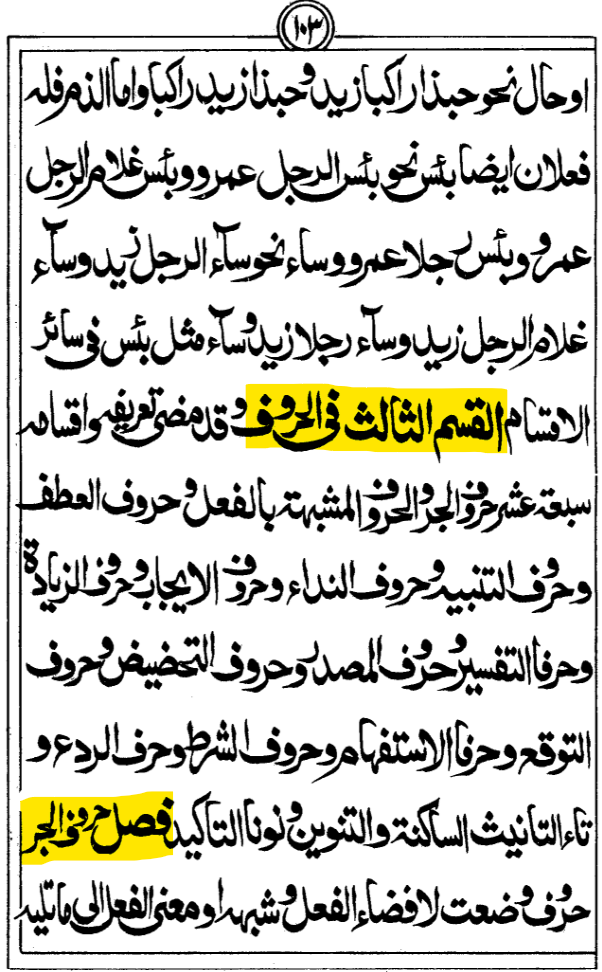 ١٠٣
او حال نحو حبذا راكبا زيد و حبذا زيد راكبا واما الذم فله
فعلان ايضا بئس نحو بئس الرجل عمرو و بئس غلام الرجل
عمرو و بئس رجلا عمرو و ساء نحو سآء الرجل زيد و سآء
غلام الرجل زيد و سآء رجلا زيد و سآء مثل بئس فى سائر
الاقسام القسم الثالث فى الحروف و قد مضى تعريفه واقسامه
سبعة عشر حروف الجر و الحروف المشبهة بالفعل و حروف العطف
و حروف التنبيه و حروف النداء و حروف الايجاب و حروف الزيادة
و حرفا التفسير و حروف المصدر و حروف التحضيض و حروف
التوقع و حرفا الاستفهام و حروف الشرط و حرف الردع و
تاء التانيث الساكنة و التنوين و نونا التاكيد فصل حروف الجر
حروف وضعت لافضاء الفعل و شبهه او معنى الفعل الى ما تليه